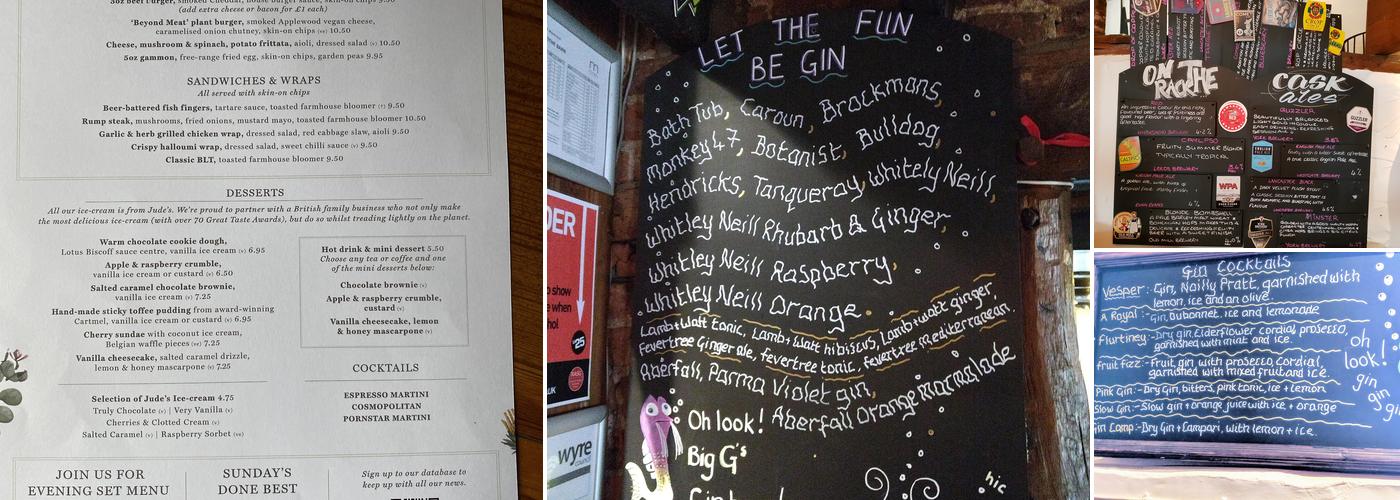 (add extra cheese or bacon for £1 each)
'Beyond Meat' plant burger, smoked Applewood vegan cheese,
caramelised onion chutney, skin-on chips (ve) 10.50
Cheese, mushroom & spinach, potato frittata, aioli, dressed salad (v) 10.50
5oz gammon, free-range fried egg, skin-on chips, garden peas 9.95
SANDWICHES & WRAPS
All served with skin-on chips
Beer-battered fish fingers, tartare sauce, toasted farmhouse bloomer (f) 9.50
Rump steak, mushrooms, fried onions, mustard mayo, toasted farmhouse bloomer 10.50
Garlic & herb grilled chicken wrap, dressed salad, red cabbage slaw, aioli 9.50
Crispy halloumi wrap, dressed salad, sweet chilli sauce (v) 9.50
Classic BLT, toasted farmhouse bloomer 9.50
DESSERTS
All our ice-cream is from Jude's. We're proud to partner with a British family business who not only make
the most delicious ice-cream (with over 70 Great Taste Awards), but do so whilst treading lightly on the planet.
Warm chocolate cookie dough,
Lotus Biscoff sauce centre, vanilla ice cream (v) 6.95
Apple & raspberry crumble,
vanilla ice cream or custard (v) 6.50
Salted caramel chocolate brownie,
vanilla ice cream (v) 7.25
Hand-made sticky toffee pudding from award-winning
Cartmel, vanilla ice cream or custard (v) 6.95
Cherry sundae with coconut ice cream,
Belgian waffle pieces (ve) 7.25
Vanilla cheesecake, salted caramel drizzle,
lemon & honey mascarpone (v) 7.25
Selection of Jude's Ice-cream 4.75
Truly Chocolate (v) | Very Vanilla (v)
Cherries & Clotted Cream (v)
Salted Caramel (v) | Raspberry Sorbet (ve)
Hot drink & mini dessert 5.50
Choose any tea or coffee and one
of the mini desserts below:
Chocolate brownie (v)
Apple & raspberry crumble,
custard (v)
Vanilla cheesecake, lemon
& honey mascarpone (v)
COCKTAILS
ESPRESSO MARTINI
COSMOPOLITAN
PORNSTAR MARTINI
JOIN US FOR
EVENING SET MENU
SUNDAY'S
DONE BEST
Sign up to our database to
keep up with all our news.
LET THE FUN
BE GIN
Bath Tub, Caroun, Brockmans,
Monkey 47, Botanist, Bulldog,
Hendricks, Tanqueray, Whitely Neill,
Whitley Neill Rhubarb & Ginger,
Whitley Neill Raspberry,
Whitley Neill Orange.
Lamb+Watt tonic, Lamb+Watt hibiscus, Lamb+watt ginger,
Fevertree Ginger ale, fevertree tonic, fevertree mediterranean.
Aberfall, Parma Violet gin,
Oh look! Aberfall Orange Marmalade
Big G's
hic
£25
wyre
ON THE
RACK
cask
ales
RED
4.2%
CALYPSO
FRUITY SUMMER BLONDE
TYPICALLY TROPICAL
LEEDS BREWERY
WPA
BLONDE BOMBSHELL
OLD MILL BREWERY
GUZZLER
BEAUTIFULLY BALANCED
YORK BREWERY
ENGLISH PALE ALE
A true classic English Pale Ale
WESTGATE BREWERY
LANCASTER BLACK
A DARK VELVET PLUSH STOUT
MINSTER
YORK BREWERY
Gin Cocktails
Vesper:- Gin, Noilly Pratt, garnished with
lemon, ice and an olive.
A Royal:- Gin, Dubonnet, ice and lemonade
Flurtiney:- Dry gin, Elderflower cordial, prosecco,
garnished with mint and ice.
Fruit fizz:- Fruit gin with prosecco cordial
garnished with mixed fruit and ice.
Pink Gin:- Dry Gin, bitters, pink tonic, ice + lemon
Slow Gin:- Slow gin + orange juice with ice + orange
Gin Camp:- Dry Gin + Campari, with lemon + ice.
oh
look!
gin
gin